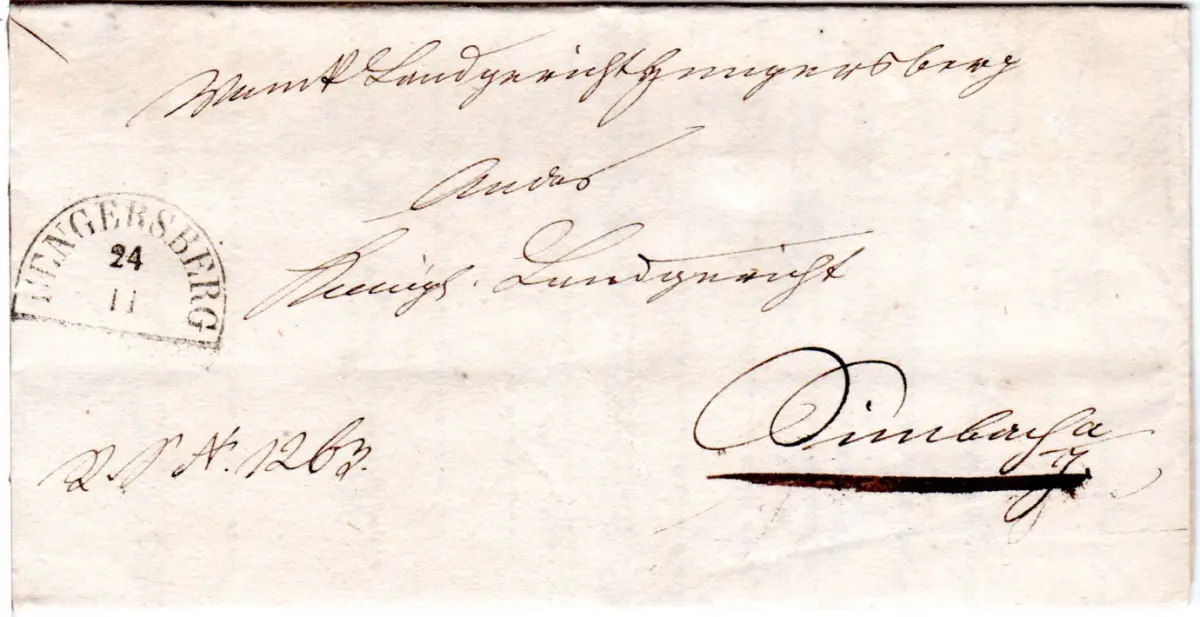 Vom K. Landgericht Hengersberg
An das
HENGERSBERG
24
11
Königl. Landgericht
Simbach a
R. S. N. 1263.